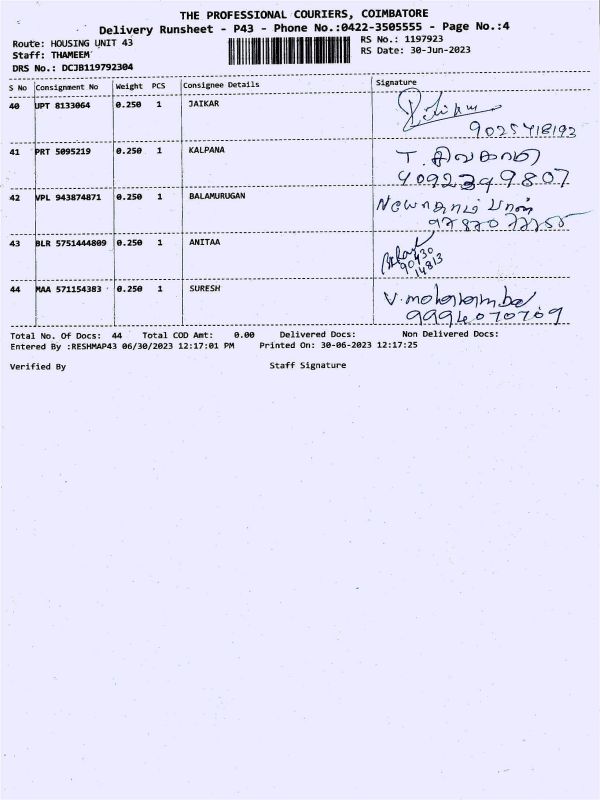 THE PROFESSIONAL COURIERS, COIMBATORE
Delivery Runsheet - P43 - Phone No.:0422-3505555 - Page No.:4
Route: HOUSING UNIT 43 RS No.: 1197923
Staff: THAMEEM RS Date: 30-Jun-2023
DRS No.: DCJB119792304
S No Consignment No Weight PCS Consignee Details Signature
40 UPT 8133064 0.250 1 JAIKAR
9025418192
41 PRT 5095219 0.250 1 KALPANA T. சிவகாமி
4092399807
42 VPL 943874871 0.250 1 BALAMURUGAN
9787077255
43 BLR 5751444809 0.250 1 ANITAA
90430
14813
44 MAA 571154383 0.250 1 SURESH V. mohanambal
9994070709
Total No. Of Docs: 44 Total COD Amt: 0.00 Delivered Docs: Non Delivered Docs:
Entered By :RESHMAP43 06/30/2023 12:17:01 PM Printed On: 30-06-2023 12:17:25
Verified By Staff Signature